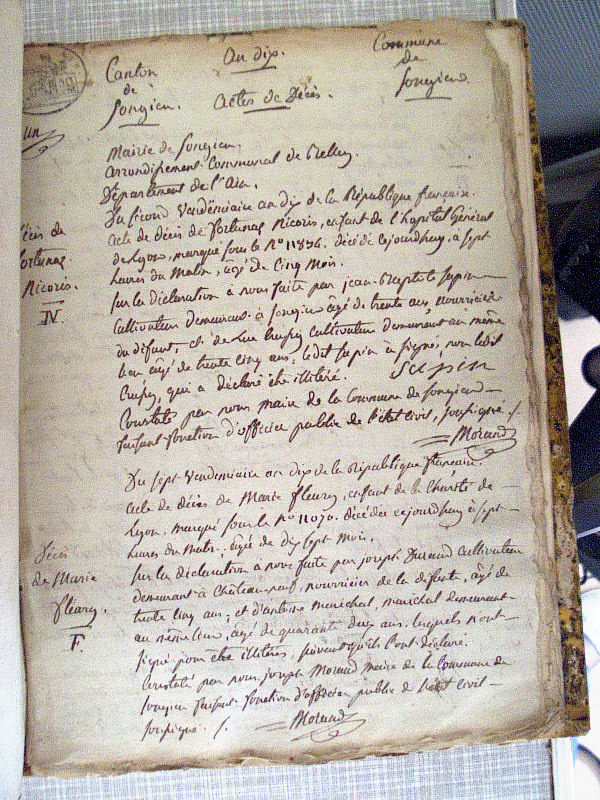 Canton de Songieu.
An dix.
Actes de Décès.
Commune de Songieu.
Mairie de Songieu.
arrondissement Communal de Belley.
Département de l'Ain.
Du second Vendémiaire an dix de la République française.
acte de décès de fortunas Nicoris, enfant de l'hopital Général
de Lyon, marqué sous le N° décédé cejourdhuy, à sept
heures du Matin, âgé de Cinq Mois.
sur la déclaration à nous faite par jean-Baptiste Supin
Cultivateur demeurant à Songieu âgé de trente ans, nourricier
du défunt, et de Luc Crussy cultivateur demeurant au même
lieu âgé de trente cinq ans, ledit Supin à signé, non ledit
qui a déclaré être illiteré. Supin
Constaté par nous maire de la Commune de Songieu
faisant fonction d'officier public de l'état civil, soussigné ./.
Morand
Décès de
fortunas
Nicoris.
IV.
Du sept Vendémiaire an dix de la République française.
acte de décès de Marie fleury, enfant de la Charité de
Lyon, marqué sous le N° 11070. décédée cejourdhuy à sept
heures du Matin, âgée de dix sept mois.
sur la déclaration a nous faite par joseph Durand Cultivateur
demeurant à Châteauneuf, nourricier de la défunte, âgé de
trente cinq ans, et d'antoine marechal, marechal demeurant
au même lieu, âgé de quarante deux ans. lesquels n'ont
signé pour être illiterés, qu'ils l'ont déclaré.
Constaté par nous joseph Morand maire de la Commune de
Songieu faisant fonction d'officier public de l'état civil
soussigné ./. Morand
Décès
de Marie
fleury.
F.